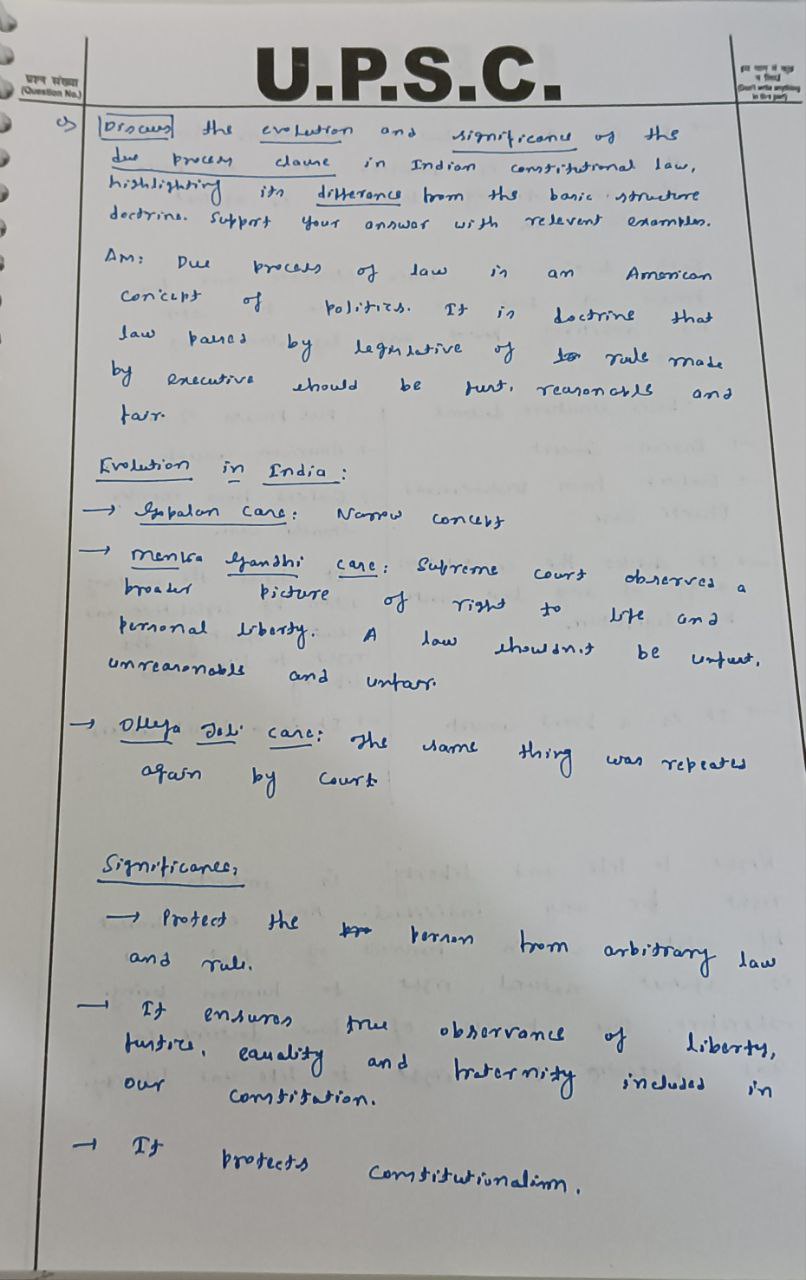 U.P.S.C.
प्रश्न संख्या
(Question No.)
(Don't write anything
in this part)
c) Discuss the evolution and significance of the
due process clause in Indian constitutional law,
highlighting its difference from the basic structure
doctrine. Support your answer with relevent examples.
Ans: Due process of law is an American
concept of politics. It is doctrine that
law passed by legislative of rule made
by executive should be just, reasonable and
fair.
Evolution in India :
→ Gopalan case: Narrow concept
→ Menka Gandhi case: Supreme court observed a
broader picture of right to life and
personal liberty. A law shouldn't be unjust,
unreasonable and unfair.
→ case: The same thing was repeated
again by court
Significance:
→ Protect the person from arbitrary law
and rule.
→ It ensures true observance of liberty,
justice, equality and fraternity included in
our constitation.
→ It protects constitutionalism.